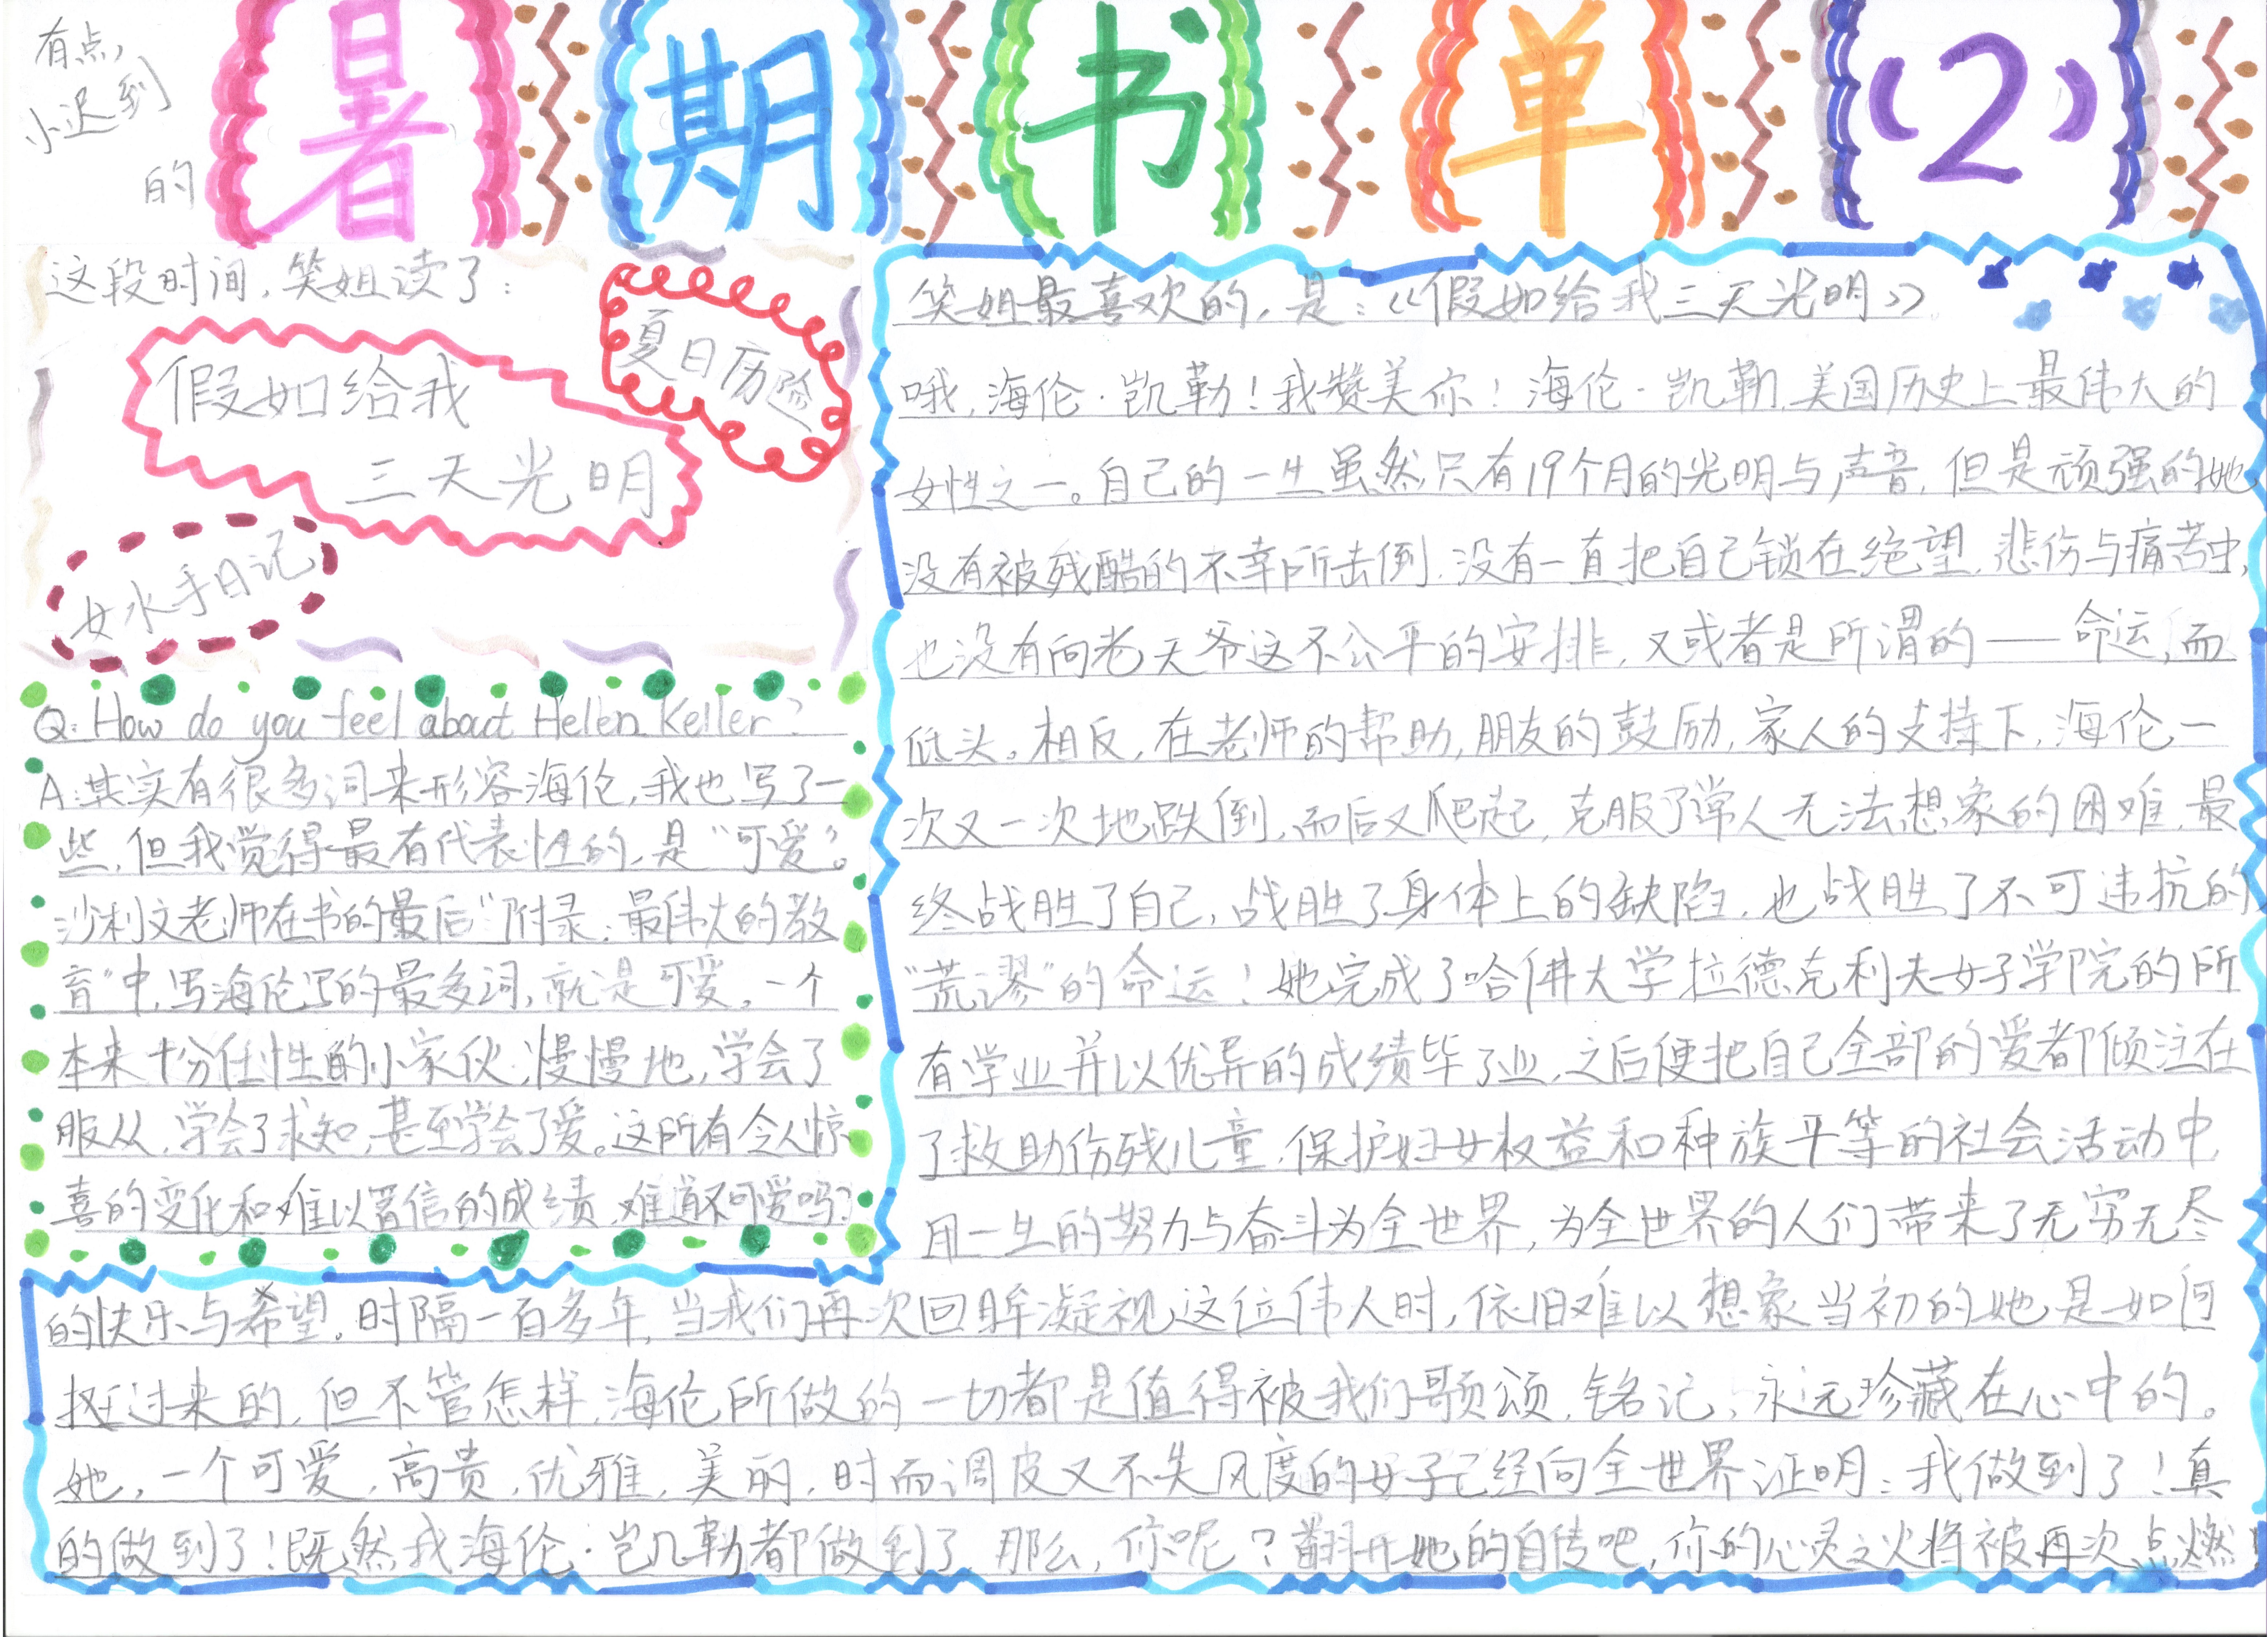 有点
小迟到
的
暑期书单(2)
这段时间,笑姐读了:
夏日历险
假如给我
三天光明
女水手日记
Q: How do you feel about Helen Keller?
A:其实有很多词来形容海伦,我也写了一
些,但我觉得最有代表性的,是“可爱”。
沙利文老师在书的最后“附录:最伟大的教
育”中,写海伦写的最多词,就是可爱。一个
本来十分任性的小家伙,慢慢地,学会了
服从,学会了求知,甚至学会了爱。这所有令人惊
喜的变化和难以置信的成绩,难道不可爱吗?
笑姐最喜欢的,是:《假如给我三天光明》
哦,海伦·凯勒!我赞美你!海伦·凯勒,美国历史上最伟大的
女性之一。自己的一生虽然只有19个月的光明与声音,但是顽强的她
没有被残酷的不幸所击倒,没有一直把自己锁在绝望,悲伤与痛苦中,
也没有向老天爷这不公平的安排,又或者是所谓的——命运,而
低头。相反,在老师的帮助,朋友的鼓励,家人的支持下,海伦一
次又一次地跌倒,而后又爬起,克服了常人无法想象的困难,最
终战胜了自己,战胜了身体上的缺陷,也战胜了不可违抗的
“荒谬”的命运!她完成了哈佛大学拉德克利夫女子学院的所
有学业并以优异的成绩毕了业,之后便把自己全部的爱都倾注在
了救助伤残儿童,保护妇女权益和种族平等的社会活动中,
用一生的努力与奋斗为全世界,为全世界的人们带来了无穷无尽
的快乐与希望。时隔一百多年,当我们再次回眸凝视这位伟人时,依旧难以想象当初的她是如何
挺过来的,但不管怎样,海伦所做的一切都是值得被我们歌颂,铭记,永远珍藏在心中的。
她,一个可爱,高贵,优雅,美丽,时而调皮又不失风度的女子已经向全世界证明:我做到了!真
的做到了!既然我海伦·凯勒都做到了,那么,你呢?翻开她的自传吧,你的心灵之火将被再次点燃!